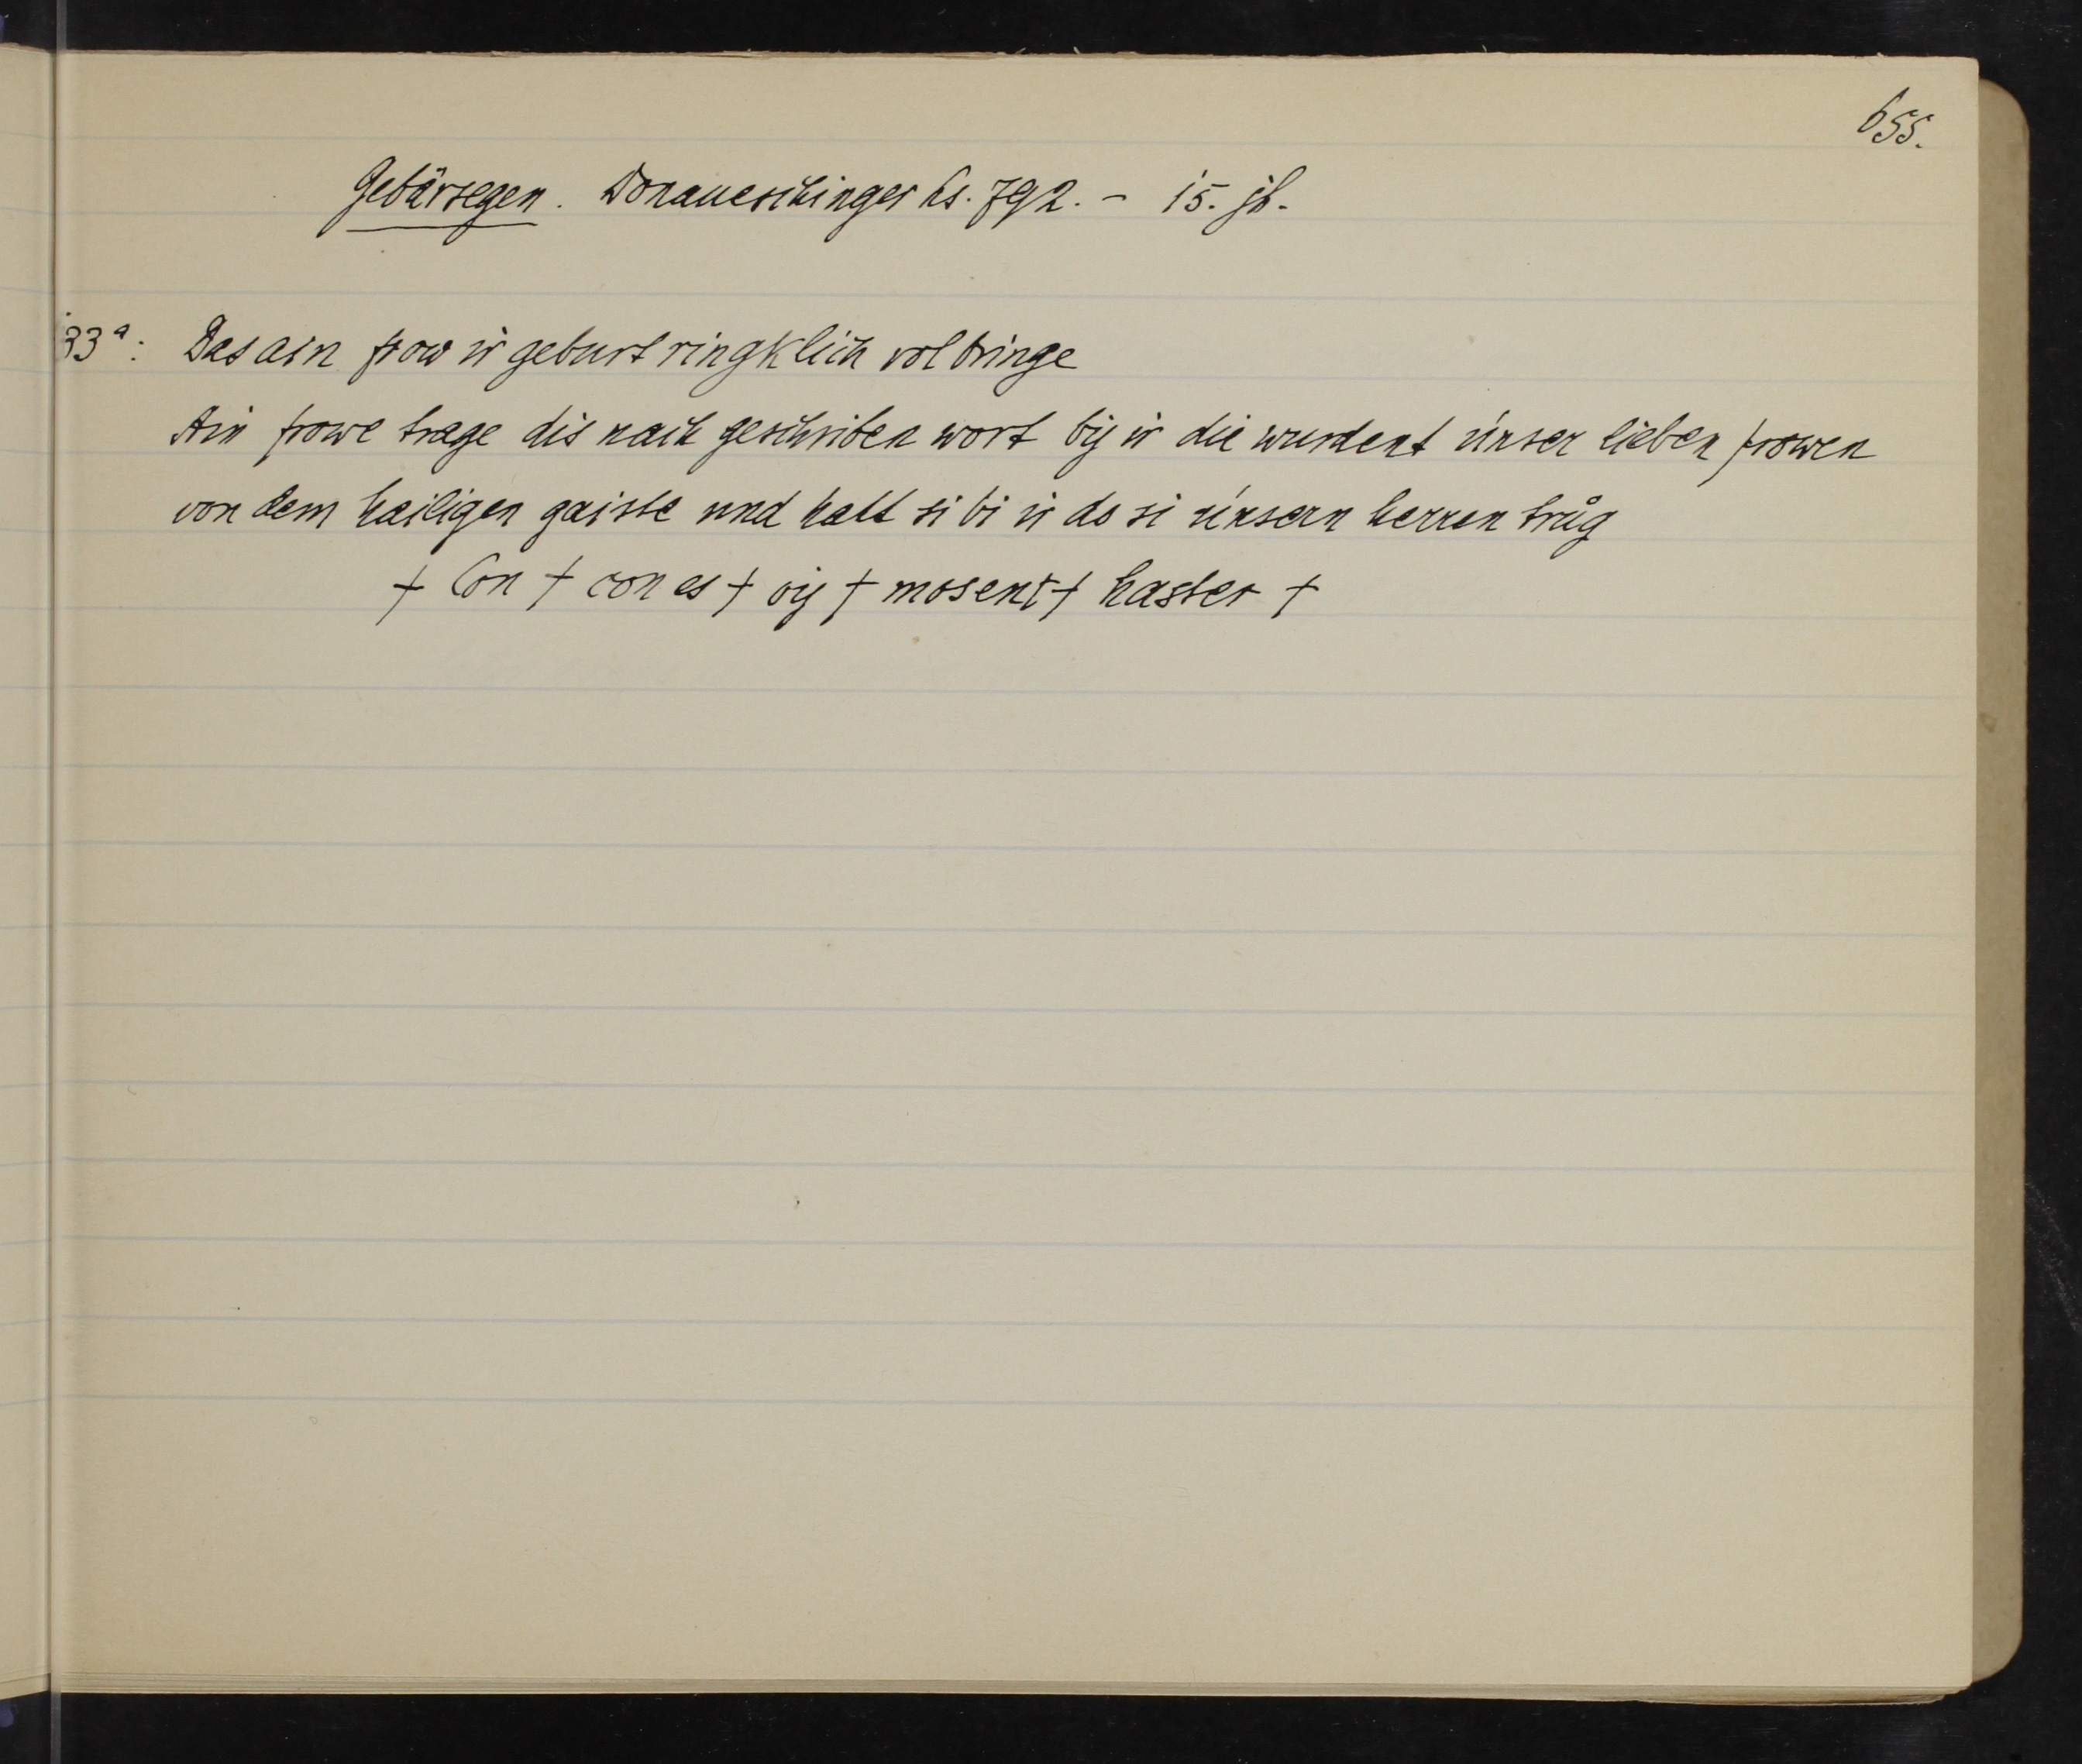 655.
Gebärsegen. Donaueschinger hs. 792. - 15. jh.
33ª: Das ain frow ir geburt ringklich volbringe
Ain frowe trage dis nach geschriben wort bÿ ir die wurdent únser lieben frowen
von dem hailigen gaiste und hatt si bi ir do si únsern herren trůg
† Con † con es † oÿ † mosent † haster †